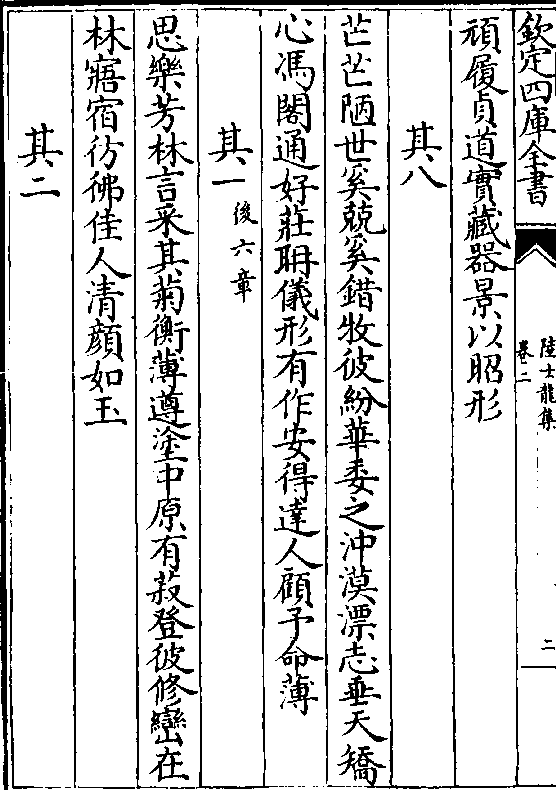 欽定四庫全書
陸士龍集
卷二
二
頑履貞道實藏器景以昭形
其八
芒芒陋世奚兢奚錯牧彼紛華委之沖漠漂志垂天矯
心馮閣通好莊聃儀形有作安得達人顧予命薄
其一後六章
思樂芳林言采其菊衡薄遵塗中原有菽登彼修巒在
林寤宿彷彿佳人清顔如玉
其二